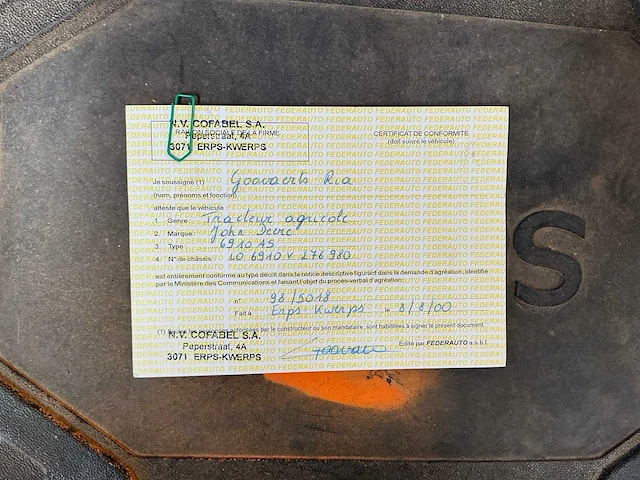 N.V. COFABEL S.A.
RAISON SOCIALE DE LA FIRME
Peperstraat, 4A
3071 ERPS-KWERPS
CERTIFICAT DE CONFORMITE
(doit suivre le véhicule)
Je soussigné (1) Goovaerts Ria
(nom, prénoms et fonction)
atteste que le véhicule :
1. Genre : Tracteur agricole
2. Marque : John Deere
3. Type : 6910 AS
4. N° de châssis : LO 6910 V 276980
est entièrement conforme au type décrit dans la notice descriptive figurant dans la demande d'agréation, identifié
par le Ministère des Communications et faisant l'objet du procès-verbal d'agréation:
n° 98/5018
Fait à Erps Kwerps le 8/8/00
(1) Seules les personnes autorisées par le constructeur ou son mandataire, sont habilitées à signer le présent document
N.V. COFABEL S.A.
Peperstraat, 4A
3071 ERPS-KWERPS
Edité par FEDERAUTO a.s.b.l.
S